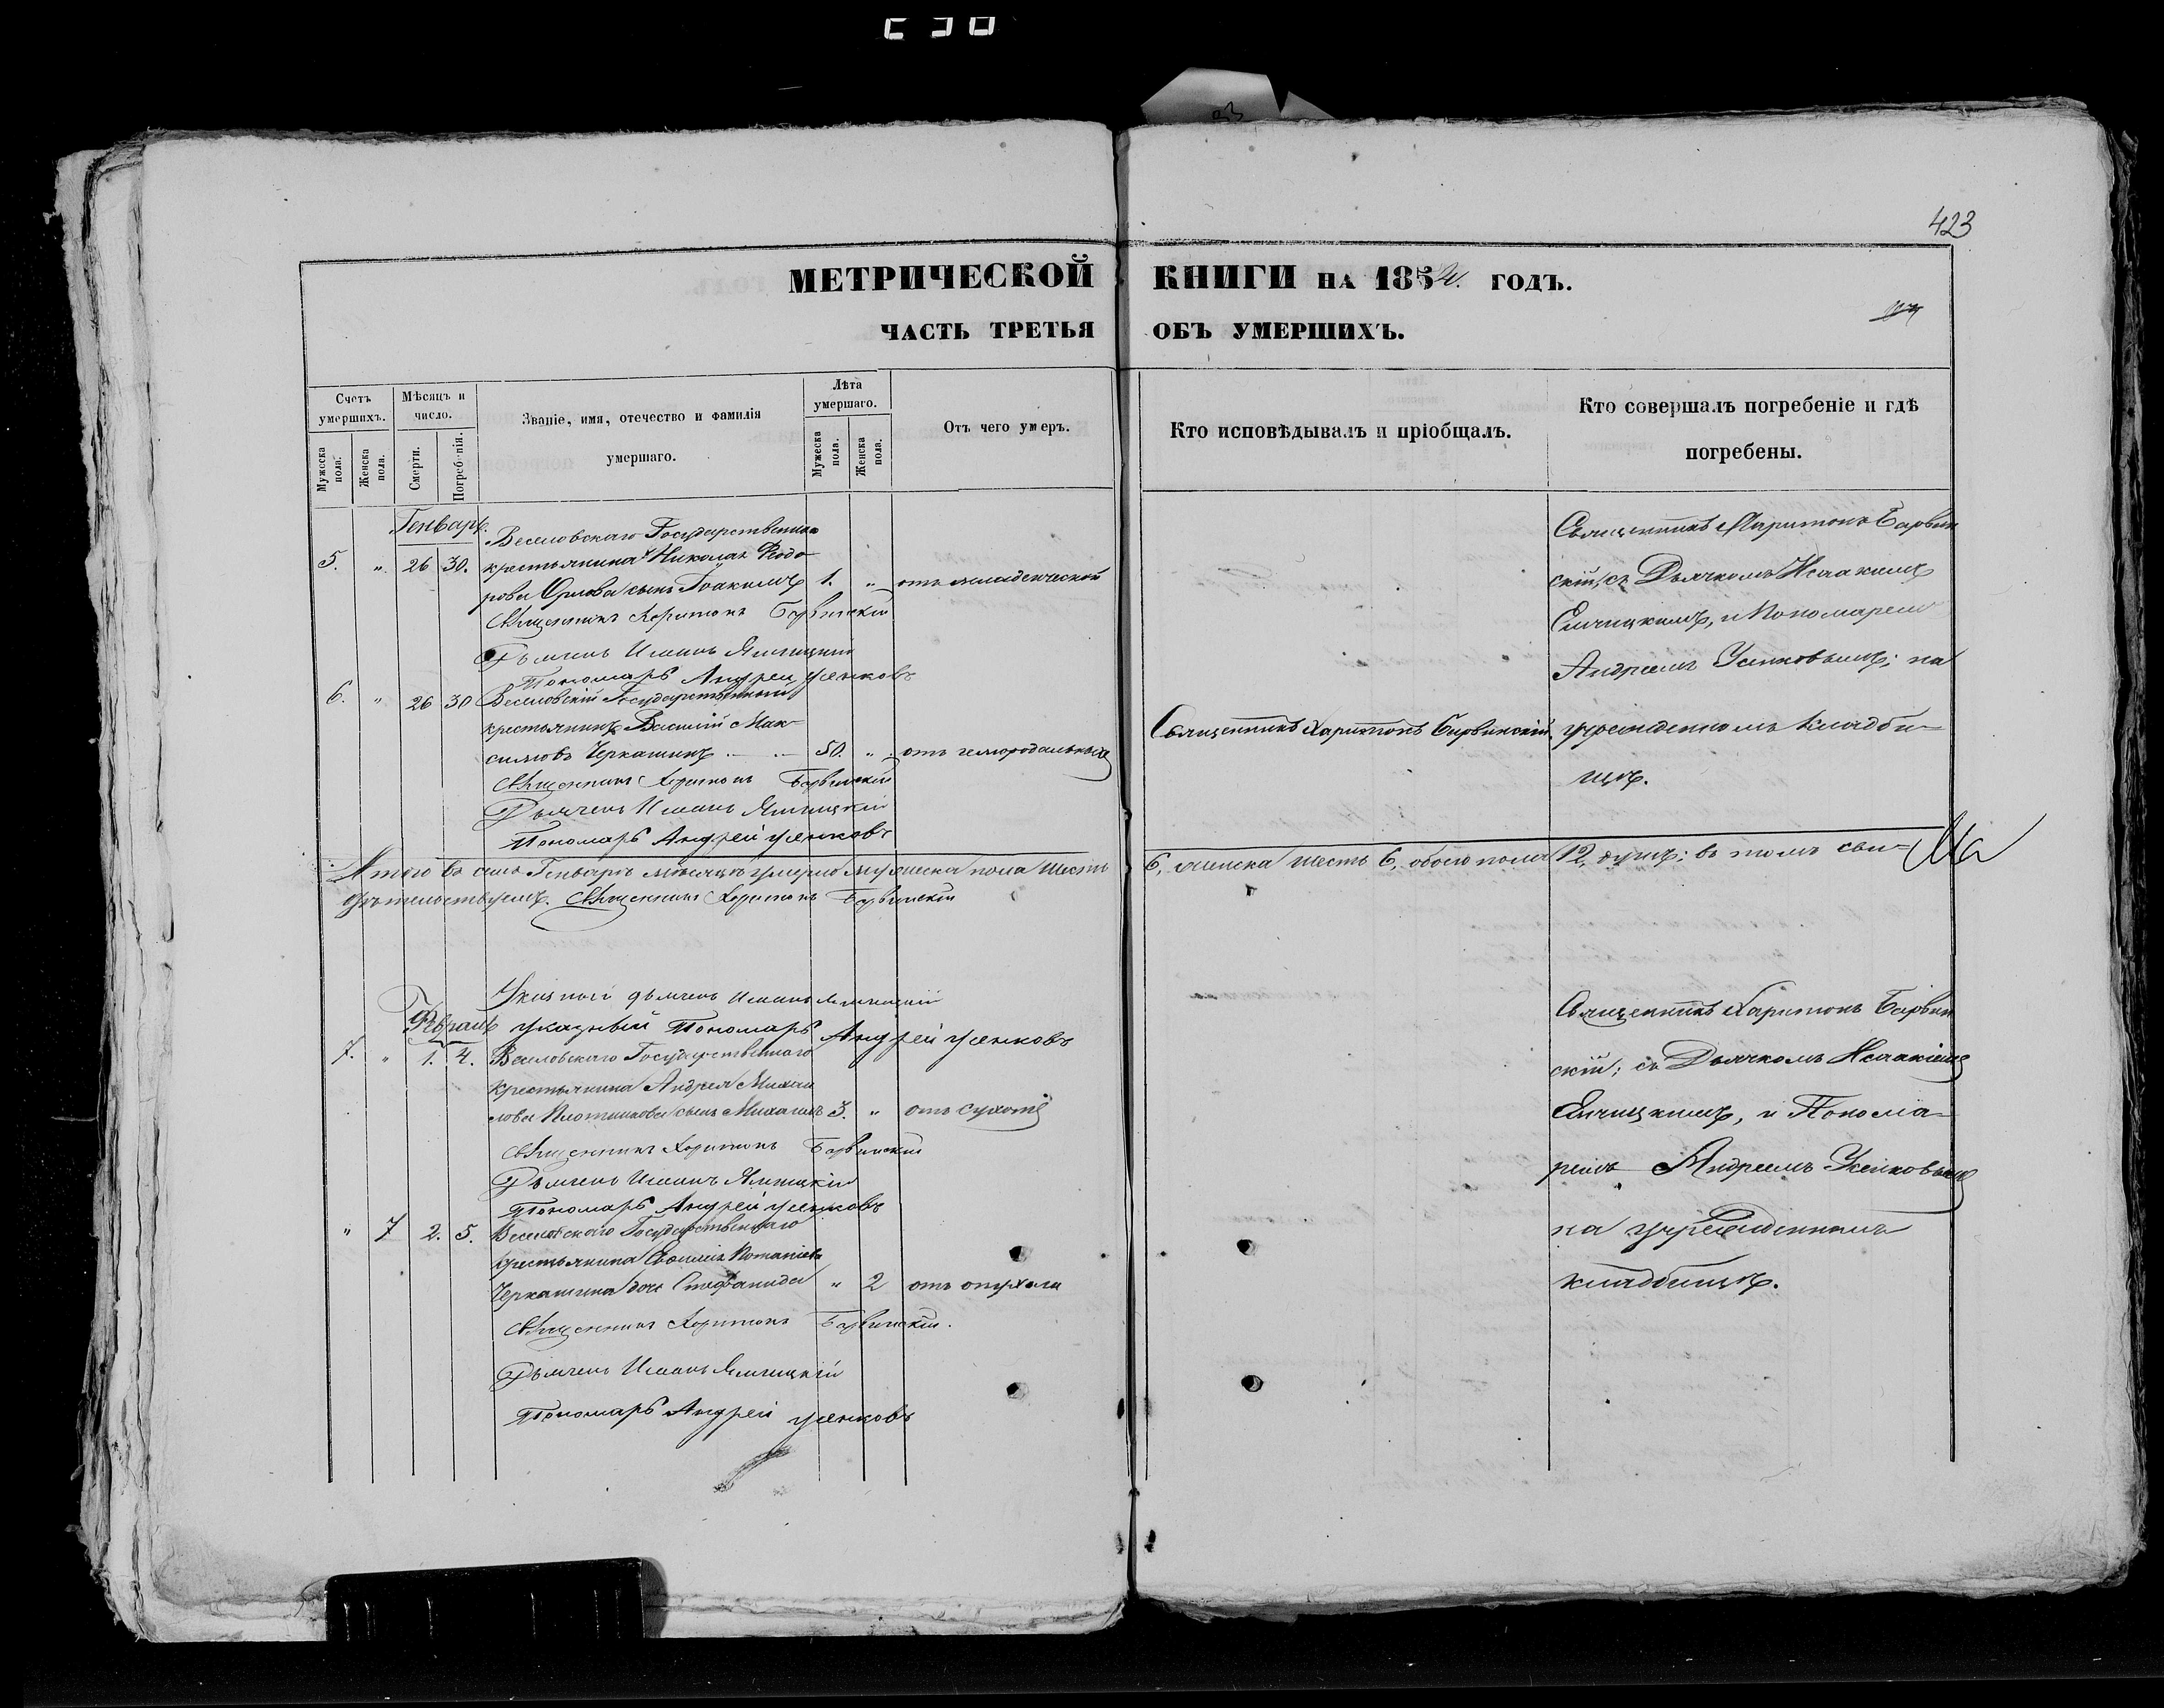 423
МЕТРИЧЕСКОЙ КНИГИ НА 1854. ГОДЪ.
ЧАСТЬ ТРЕТЬЯ ОБЪ УМЕРШИХЪ.
Счетъ умершихъ.
Мужеска пола.
Женска пола.
Мѣсяцъ и число.
Смерти.
Погребенія.
Званіе, имя, отечество и фамилія
умершаго.
Лѣта умершаго.
Мужеска пола.
Женска пола.
Отъ чего умеръ.
Кто исповѣдывалъ и пріобщалъ.
Кто совершалъ погребеніе и гдѣ
погребены.
Генварь.
Веселовскаго Государственнаго
5. " 26 30. крестьянина Николая Ѳеодо-
рова Орлова сынъ Іоакимъ 1. " отъ младенческой
Священникъ Харитонъ Барвинскій
Дьячекъ
Пономарь Андрей Усенковъ
Священникъ Харитонъ Барвин
скій, съ Дьячкомъ Исаакіемъ
и Пономаремъ
Андреемъ Усенковымъ; на
учрежденномъ кладби-
щѣ.
6. " 26 30 Веселовскій Государственный
крестьянинъ Василій Мак-
симовъ Черкашинъ 50. " отъ гемороидальныхъ
Священникъ Харитонъ Барвинскій.
Священникъ Харитонъ Барвинскій
Дьячекъ
Пономарь Андрей Усенковъ
Итого въ семъ Генварѣ мѣсяцѣ умерло мужеска пола шесть 6, женска шесть 6, обоего пола 12, душъ; въ томъ сви-
дѣтельствуемъ. Священникъ Харитонъ Барвинскій
Указной дьячекъ
Февраль Указный Пономарь Андрей Усенковъ
7. " 1. 4. Веселовскаго Государственнаго
крестьянина Андрея Михаи
лова Плотникова сынъ Михаилъ 3. " отъ сухоты
Священникъ Харитонъ Барвинскій
Дьячекъ
Пономарь Андрей Усенковъ
" 7 2. 5. Веселовскаго Государственнаго
крестьянина
Черкашина дочь Стефанида " 2 отъ опухоли
Священникъ Харитонъ Барвинскій.
Дьячекъ
Пономарь Андрей Усенковъ
Священникъ Харитонъ Барвин
скій; съ Дьячкомъ Исаакіемъ
и Понома-
ремъ Андреемъ Усенковымъ
на учрежденномъ
кладбищѣ.